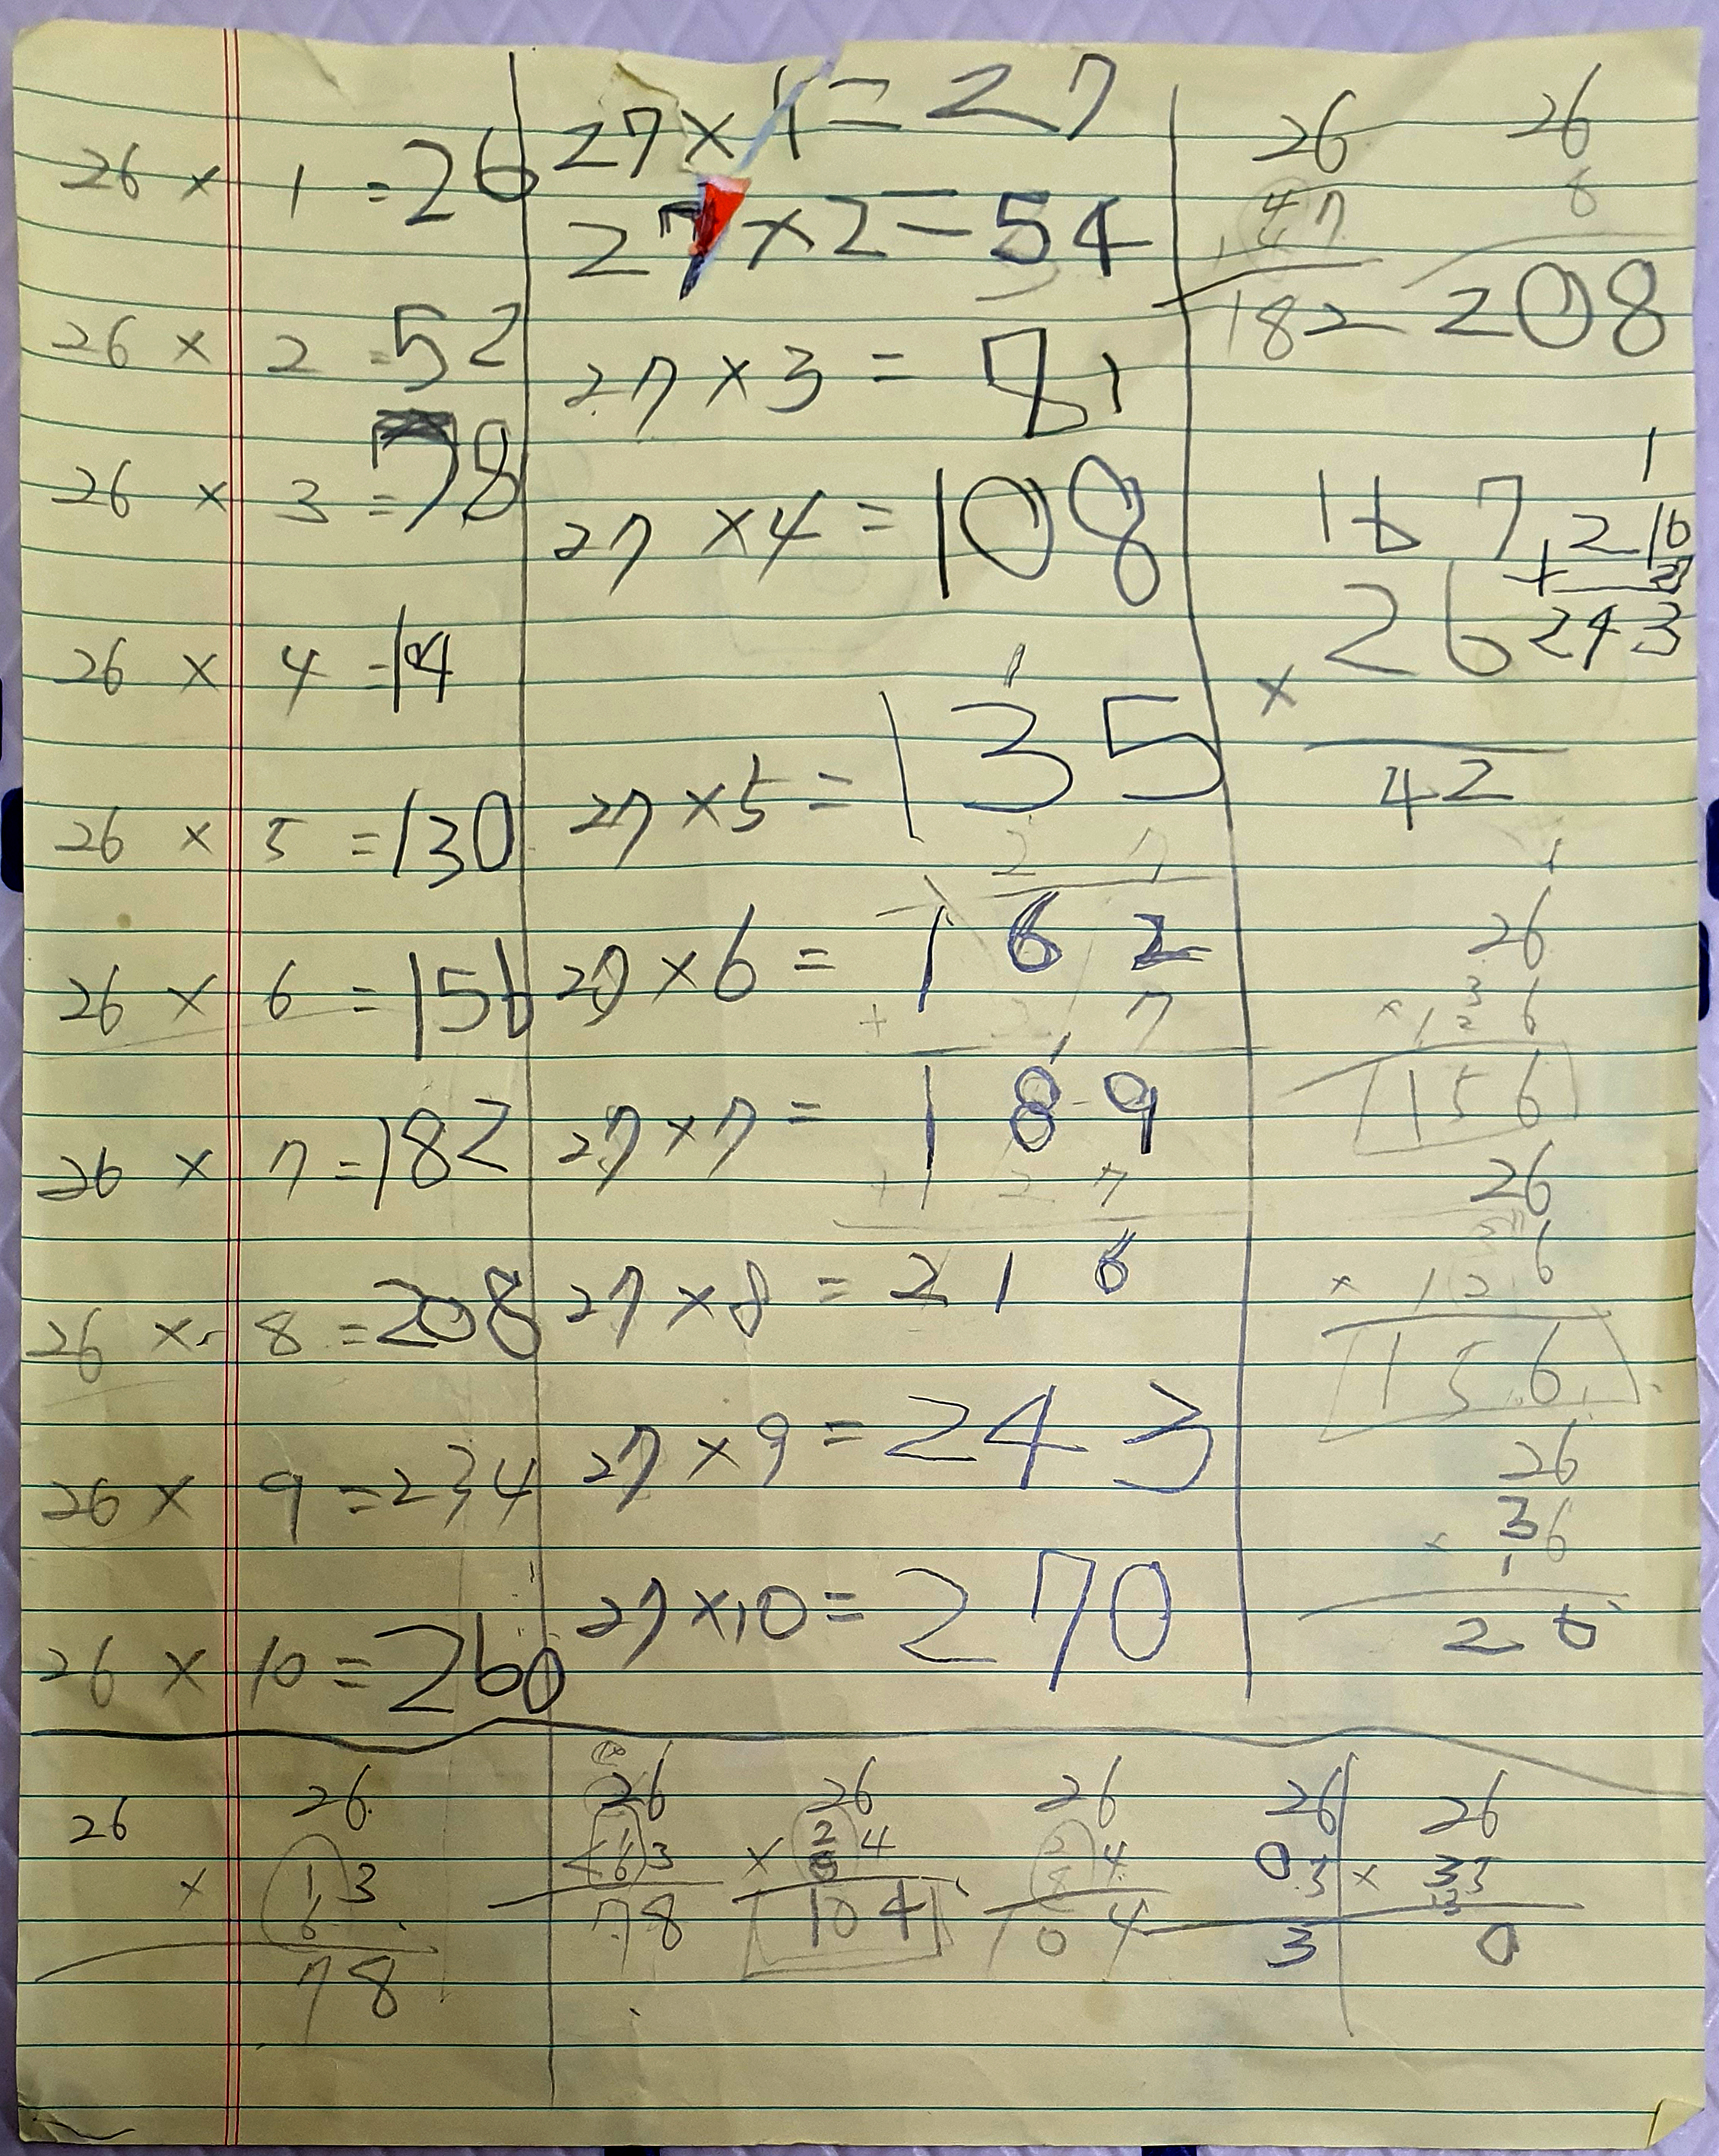 26 × 1 = 26
26 × 2 = 52
26 × 3 = 78
26 × 4 = 104
26 × 5 = 130
26 × 6 = 156
26 × 7 = 182
26 × 8 = 208
26 × 9 = 234
26 × 10 = 260
27 × 1 = 27
27 × 2 = 54
27 × 3 = 81
27 × 4 = 108
1
27 × 5 = 135
2 7
27 × 6 = 162
+ 2 7
1
27 × 7 = 189
+ 2 7
27 × 8 = 216
27 × 9 = 243
27 × 10 = 270
26
47
182
26
8
208
1
216
+ 27
243
167
× 26
42
1
26
3
× 12 6
156
26
3
× 12 6
156
26
36
×
1
20
26
26
× 1 3
6
78
26
1 3
6
78
26
× 2 4
8
104
26
2 4
8
104
26
0 3
3
26
× 33
3
0